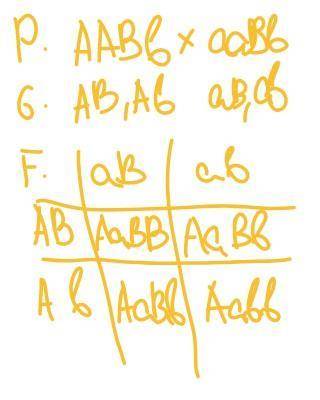 P. AABb × aaBb
G. AB, Ab aB, ab
F. aB ab
AB AaBB AaBb
Ab AaBb Aabb